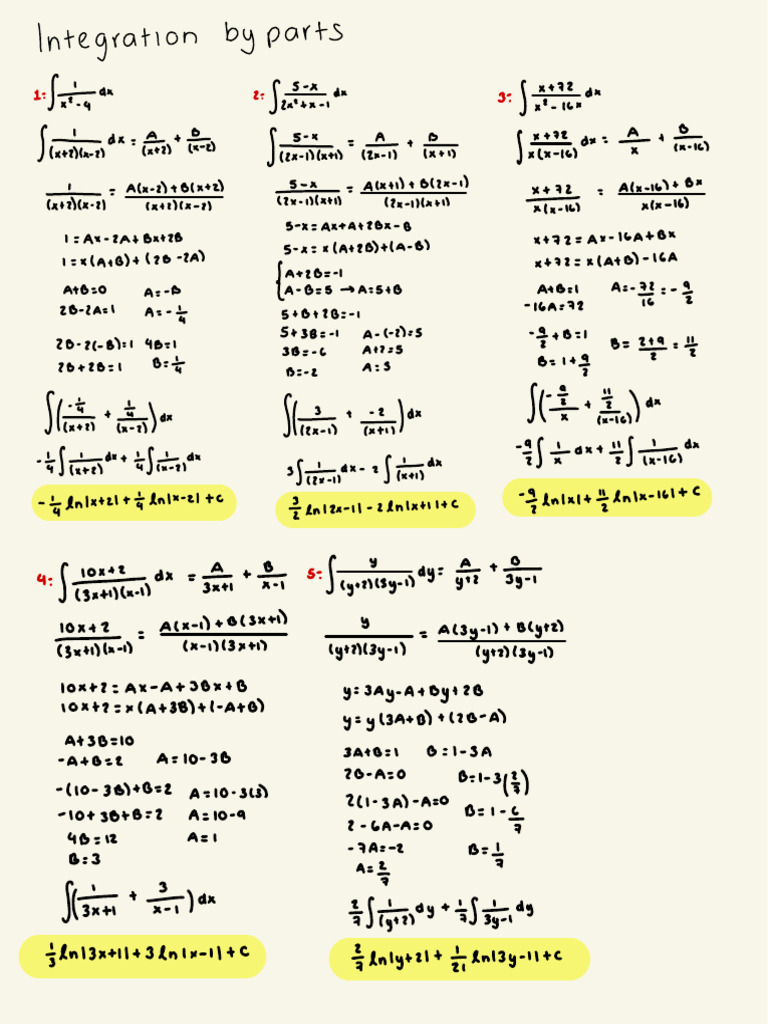 Integration by parts
1: ∫ 1/(x²-4) dx
∫ 1/((x+2)(x-2)) dx = A/(x+2) + B/(x-2)
1/((x+2)(x-2)) = (A(x-2)+B(x+2))/((x+2)(x-2))
1=Ax-2A+Bx+2B
1=x(A+B)+(2B-2A)
A+B=0 A=-B
2B-2A=1 A=-1/4
2B-2(-B)=1 4B=1
2B+2B=1 B=1/4
∫((-1/4)/(x+2) + (1/4)/(x-2))dx
-1/4 ∫ 1/(x+2) dx + 1/4 ∫ 1/(x-2) dx
-1/4 ln|x+2|+1/4 ln|x-2|+C
2: ∫ (5-x)/(2x²+x-1) dx
∫ (5-x)/((2x-1)(x+1)) = A/(2x-1) + B/(x+1)
(5-x)/((2x-1)(x+1)) = (A(x+1)+B(2x-1))/((2x-1)(x+1))
5-x=Ax+A+2Bx-B
5-x=x(A+2B)+(A-B)
{A+2B=-1
A-B=5 →A=5+B
5+B+2B=-1
5+3B=-1 A-(-2)=5
3B=-6 A+2=5
B=-2 A=3
∫(3/(2x-1) + -2/(x+1))dx
3∫ 1/(2x-1) dx - 2 ∫ 1/(x+1) dx
3/2 ln|2x-1|-2 ln|x+1|+C
3: ∫ (x+72)/(x²-16x) dx
∫ (x+72)/(x(x-16)) dx = A/x + B/(x-16)
(x+72)/(x(x-16)) = (A(x-16)+Bx)/(x(x-16))
x+72=Ax-16A+Bx
x+72=x(A+B)-16A
A+B=1 A=-72/16=-9/2
-16A=72
-9/2+B=1 B=(2+9)/2=11/2
B=1+9/2
∫((-9/2)/x + (11/2)/(x-16)) dx
-9/2 ∫ 1/x dx + 11/2 ∫ 1/(x-16) dx
-9/2 ln|x|+11/2 ln|x-16|+C
4: ∫ (10x+2)/((3x+1)(x-1)) dx = A/(3x+1) + B/(x-1)
(10x+2)/((3x+1)(x-1)) = (A(x-1)+B(3x+1))/((x-1)(3x+1))
10x+2=Ax-A+3Bx+B
10x+2=x(A+3B)+(-A+B)
A+3B=10
-A+B=2 A=10-3B
-(10-3B)+B=2 A=10-3(3)
-10+3B+B=2 A=10-9
4B=12 A=1
B=3
∫(1/(3x+1) + 3/(x-1))dx
1/3 ln|3x+1|+3 ln|x-1|+C
5: ∫ y/((y+2)(3y-1)) dy = A/(y+2) + B/(3y-1)
y/((y+2)(3y-1)) = (A(3y-1)+B(y+2))/((y+2)(3y-1))
y=3Ay-A+By+2B
y=y(3A+B)+(2B-A)
3A+B=1 B=1-3A
2B-A=0 B=1-3(2/7)
2(1-3A)-A=0 B=1-6/7
2-6A-A=0
-7A=-2 B=1/7
A=2/7
2/7 ∫ 1/(y+2) dy + 1/7 ∫ 1/(3y-1) dy
2/7 ln|y+2|+1/21 ln|3y-1|+C